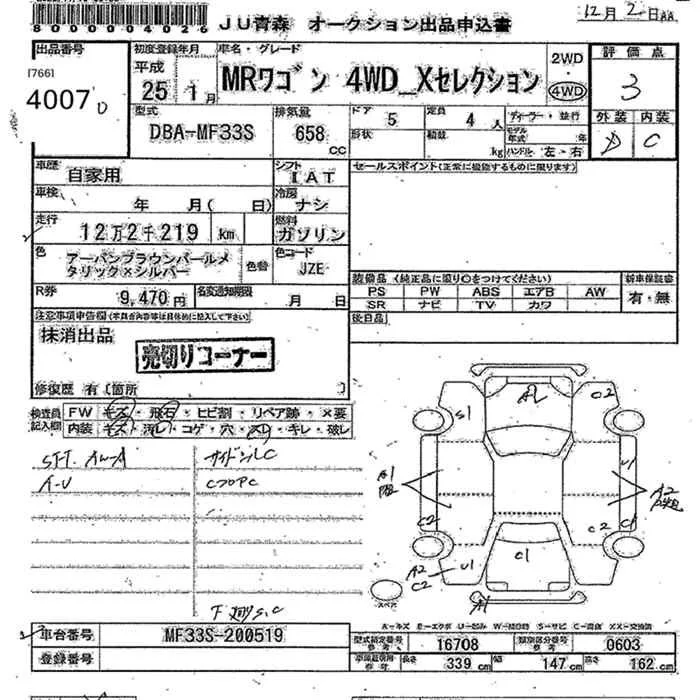 8000004026
JU青森 オークション出品申込書
12月2日AA
出品番号
[766]
4007D
初度登録年月
平成
25年1月
車名・グレード
MRワゴン 4WD_Xセレクション
2WD
4WD
評価点
3
外装 内装
D C
型式
DBA-MF33S
排気量
658 CC
ドア 5
定員 4人
ディーラー・並行
形状
積載 kg
モデル年式 年
ハンドル 左・右
車歴
自家用
シフト
IAT
セールスポイント(正常に機能するものに限ります)
車検
年 月( 日)
冷房
ナシ
走行
12万2千219 km
燃料
ガソリン
色
アーバンブラウンパールメ
タリック×シルバー
色替
色コード
JZE
装備品 (純正品に限り○をつけてください)
新車保証書
PS PW ABS エアB AW
有・無
SR ナビ TV カワ
R券
9,470円
名変通知期限
月 日
後日品
注意事項申告欄(不具合内容等は具体的に記入して下さい)
抹消出品
売切りコーナー
修復歴 有〔箇所 〕
検査員
記入欄
FW キズ・飛石・ヒビ割・リペア跡・×要
内装 キズ・汚レ・コゲ・穴・スレ・キレ・破レ
C70PC
AL
S1
C2
A1
U1
A2
C2
C2
C1
A2
C2
U1
C1
A1
スペア
A-キズ E-エクボ U-凹み W-補修跡 S-サビ C-腐食 XX-交換済
車台番号
MF33S-200519
登録番号
型式指定番号
参考
16708
類別区分番号
参考
0603
長さ 339 cm
幅 147 cm
高さ 162 cm